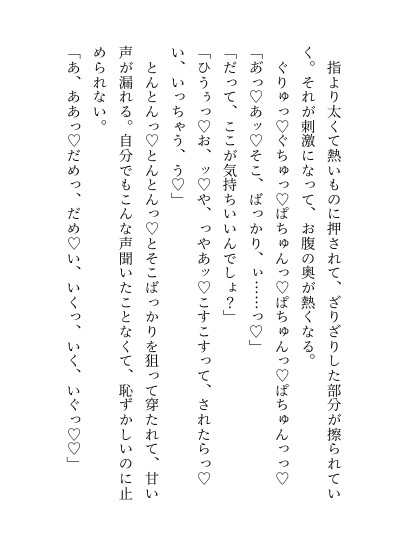 指より太くて熱いものに押されて、ざりざりした部分が擦られてい
く。それが刺激になって、お腹の奥が熱くなる。
　ぐりゅっ♡ぐちゅっ♡ぱちゅんっ♡ぱちゅんっ♡ぱちゅんっっ♡
「あ゛っ♡あッ♡そこ、ばっかり、ぃ……っ♡」
「だって、ここが気持ちいいんでしょ？」
「ひうぅっ♡お、ッ♡や、っやあッ♡こすこすって、されたらっ♡
い、いっちゃう、う♡」
　とんとんっ♡とんとんっ♡とそこばっかりを狙って穿たれて、甘い
声が漏れる。自分でもこんな声聞いたことなくて、恥ずかしいのに止
められない。
「あ、ああっ♡だめっ、だめ♡い、いくっ、いく、いぐっ♡♡」